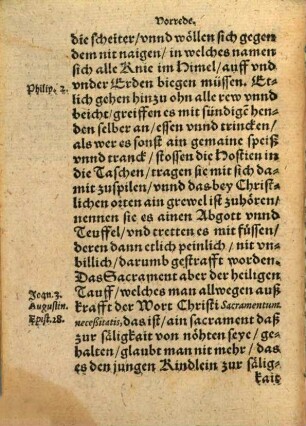 Vorrede.
die scheiter/vnnd wöllen sich gegen
dem nit naigen/in welches namen
sich alle Knie im Himel/auff vnd
Philip. 2.
vnder Erden biegen müssen. Et-
lich gehen hinzu ohn alle rew vnnd
beicht/greiffen es mit sündigẽ hen-
den selber an/essen vnnd trincken/
als wer es sonst ain gemaine speiß
vnnd tranck/stossen die Hostien in
die Taschen/tragen sie mit sich da-
mit zuspilen/vnnd das bey Christ-
lichen orten ain grewel ist zuhören/
nennen sie es ainen Abgott vnnd
Teuffel/vnd tretten es mit füssen/
deren dann etlich peinlich/nit vn-
billich/darumb gestrafft worden.
Das Sacrament aber der heiligen
Tauff/welches man allwegen auß
Joan. 3.
krafft der Wort Christi Sacramentum
Augustin.
Epist. 28.
necessitatis, das ist/ain sacrament daß
zur säligkait von nöhten seye/ge-
halten/glaubt man nit mehr/das
es den jungen Kindlein zur sälig-
kait